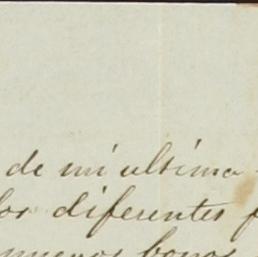 de mi ultima
los diferentes
nuevos bonos